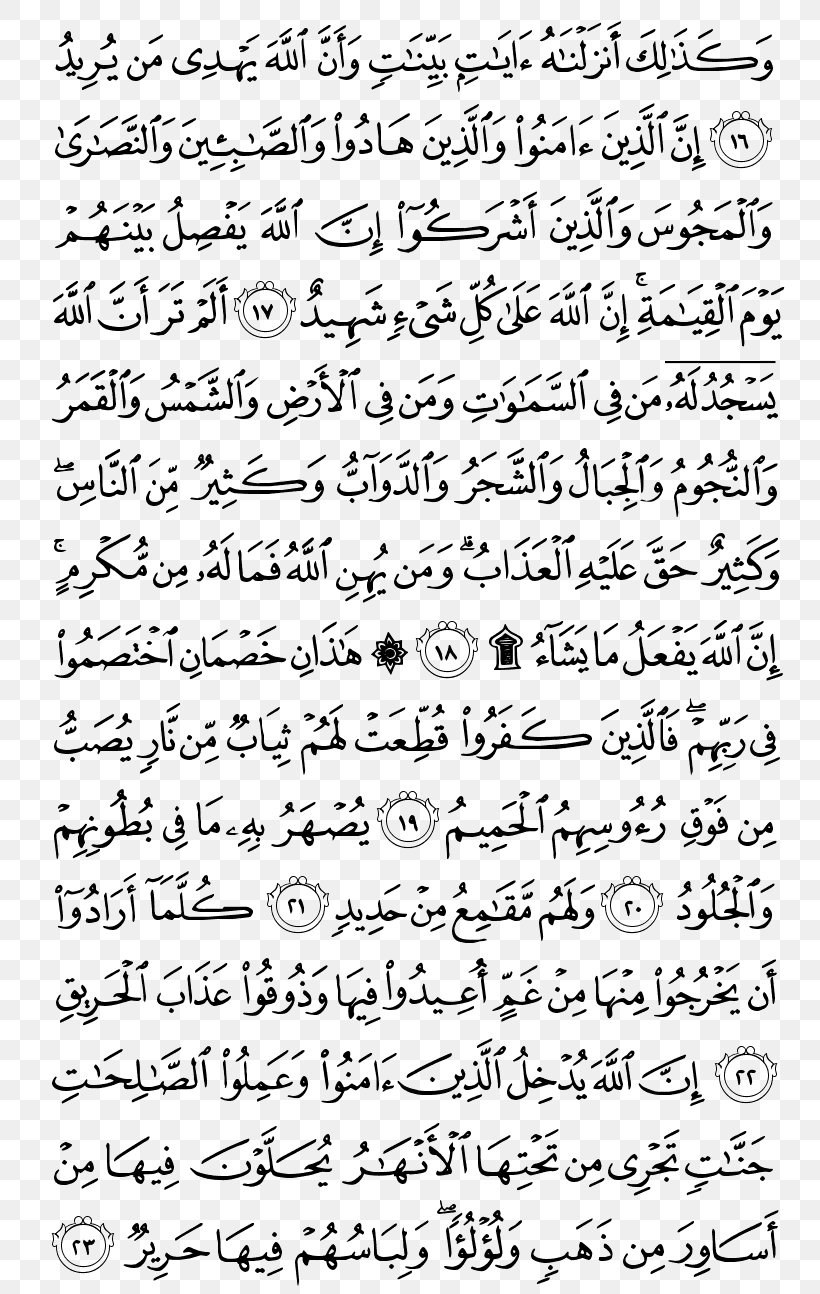 وَكَذَٰلِكَ أَنزَلْنَٰهُ ءَايَٰتٍۭ بَيِّنَٰتٍ وَأَنَّ ٱللَّهَ يَهْدِى مَن يُرِيدُ
١٦ إِنَّ ٱلَّذِينَ ءَامَنُوا۟ وَٱلَّذِينَ هَادُوا۟ وَٱلصَّٰبِـِٔينَ وَٱلنَّصَٰرَىٰ
وَٱلْمَجُوسَ وَٱلَّذِينَ أَشْرَكُوٓا۟ إِنَّ ٱللَّهَ يَفْصِلُ بَيْنَهُمْ
يَوْمَ ٱلْقِيَٰمَةِ ۚ إِنَّ ٱللَّهَ عَلَىٰ كُلِّ شَىْءٍ شَهِيدٌ ١٧ أَلَمْ تَرَ أَنَّ ٱللَّهَ
يَسْجُدُ لَهُۥ مَن فِى ٱلسَّمَٰوَٰتِ وَمَن فِى ٱلْأَرْضِ وَٱلشَّمْسُ وَٱلْقَمَرُ
وَٱلنُّجُومُ وَٱلْجِبَالُ وَٱلشَّجَرُ وَٱلدَّوَآبُّ وَكَثِيرٌ مِّنَ ٱلنَّاسِ ۖ
وَكَثِيرٌ حَقَّ عَلَيْهِ ٱلْعَذَابُ ۗ وَمَن يُهِنِ ٱللَّهُ فَمَا لَهُۥ مِن مُّكْرِمٍ ۚ
إِنَّ ٱللَّهَ يَفْعَلُ مَا يَشَآءُ ۩ ١٨ ۞ هَٰذَانِ خَصْمَانِ ٱخْتَصَمُوا۟
فِى رَبِّهِمْ ۖ فَٱلَّذِينَ كَفَرُوا۟ قُطِّعَتْ لَهُمْ ثِيَابٌ مِّن نَّارٍ يُصَبُّ
مِن فَوْقِ رُءُوسِهِمُ ٱلْحَمِيمُ ١٩ يُصْهَرُ بِهِۦ مَا فِى بُطُونِهِمْ
وَٱلْجُلُودُ ٢٠ وَلَهُم مَّقَٰمِعُ مِنْ حَدِيدٍ ٢١ كُلَّمَآ أَرَادُوٓا۟
أَن يَخْرُجُوا۟ مِنْهَا مِنْ غَمٍّ أُعِيدُوا۟ فِيهَا وَذُوقُوا۟ عَذَابَ ٱلْحَرِيقِ
٢٢ إِنَّ ٱللَّهَ يُدْخِلُ ٱلَّذِينَ ءَامَنُوا۟ وَعَمِلُوا۟ ٱلصَّٰلِحَٰتِ
جَنَّٰتٍ تَجْرِى مِن تَحْتِهَا ٱلْأَنْهَٰرُ يُحَلَّوْنَ فِيهَا مِنْ
أَسَاوِرَ مِن ذَهَبٍ وَلُؤْلُؤًا ۖ وَلِبَاسُهُمْ فِيهَا حَرِيرٌ ٢٣